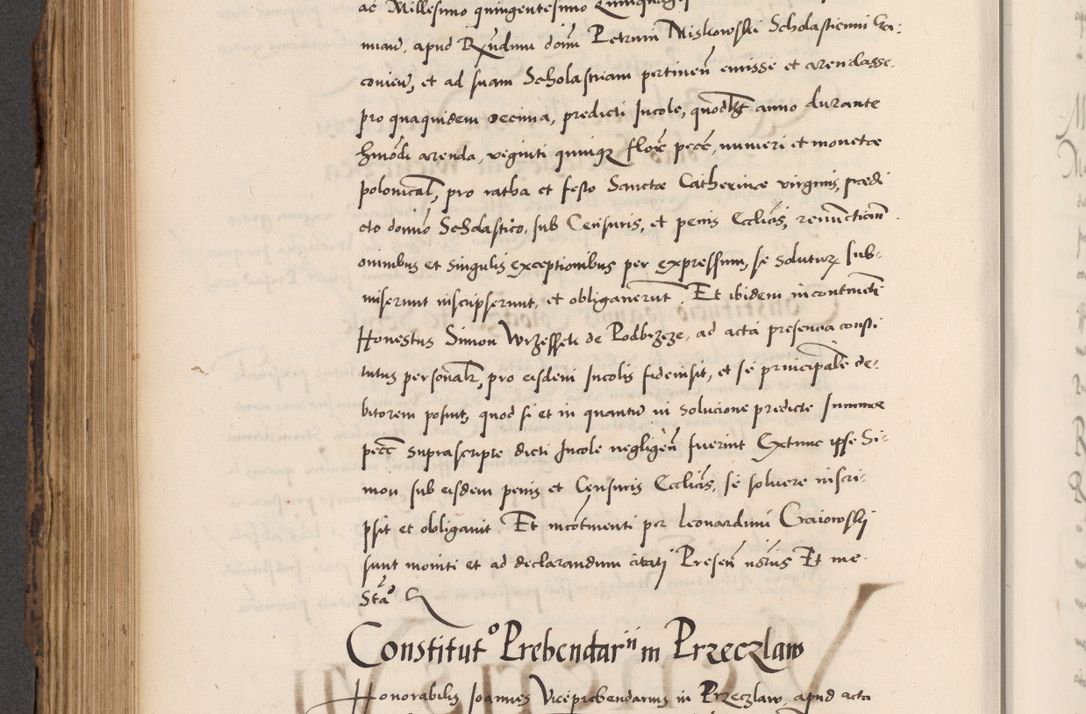 ac Millesimo quingentesimo
apud Rñdum doim Petrum Miskowski Scholasticum
et ad suam Scholastriam pertineñ emisse et arendasse
pro quaquidem decima, predicti Incole, anno durante
hmodi arenda, viginti quinqz floreñ pecc, numeri et monetae
polonical, pro ratha et festo Sanctae Catherinae virginis, predi
cto domino Scholastico, sub Censuris, et penis Ecclicis,
omnibus et singulis exceptionibus per expressum, se soluturz sub-
miserunt inscripserunt, et obliganerunt. Et ibidem incontinenti
Honestus Simon de Podbrzeze, ad acta presencia consti
tutus personalr, pro eisdem Incolis fideiussit, et se principale de-
bitorem posuit, quod si et in quantum in solucione predicte summae
pecc suprascripte dicti Incole negligeñ fuerint Extunc ipse Si-
mon sub eisdem penis et Censuris Ecclicis, se soluere inscri-
psit et obliganit. Et incontinenti per Leonardum Graiowski
sunt moniti et ad declarandum citati Presen nobis Et me
Constitut° Prebendarii in Przeczlaw
Honorabilis Joannes Viceprebendarius in Przeczlaw, apud acta